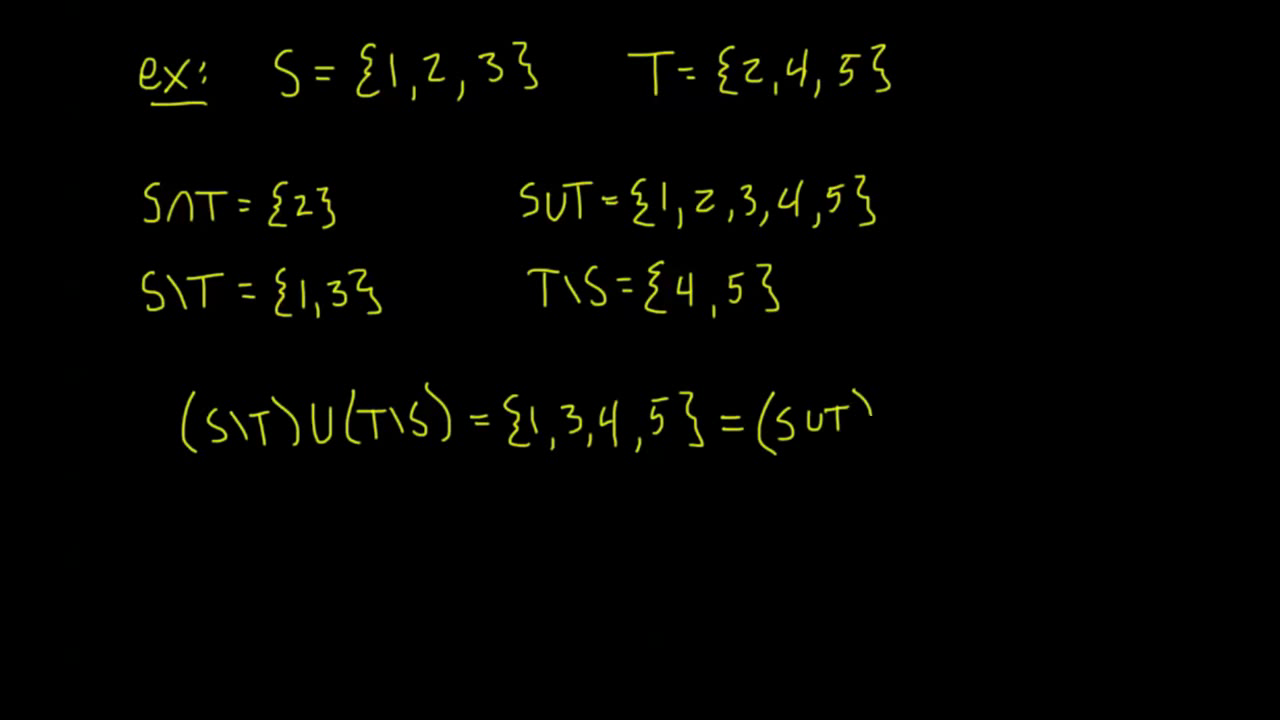 ex: S = {1, 2, 3} T = {2, 4, 5}
S∩T = {2} S∪T = {1, 2, 3, 4, 5}
S\T = {1, 3} T\S = {4, 5}
(S\T)∪(T\S) = {1, 3, 4, 5} = (S∪T)